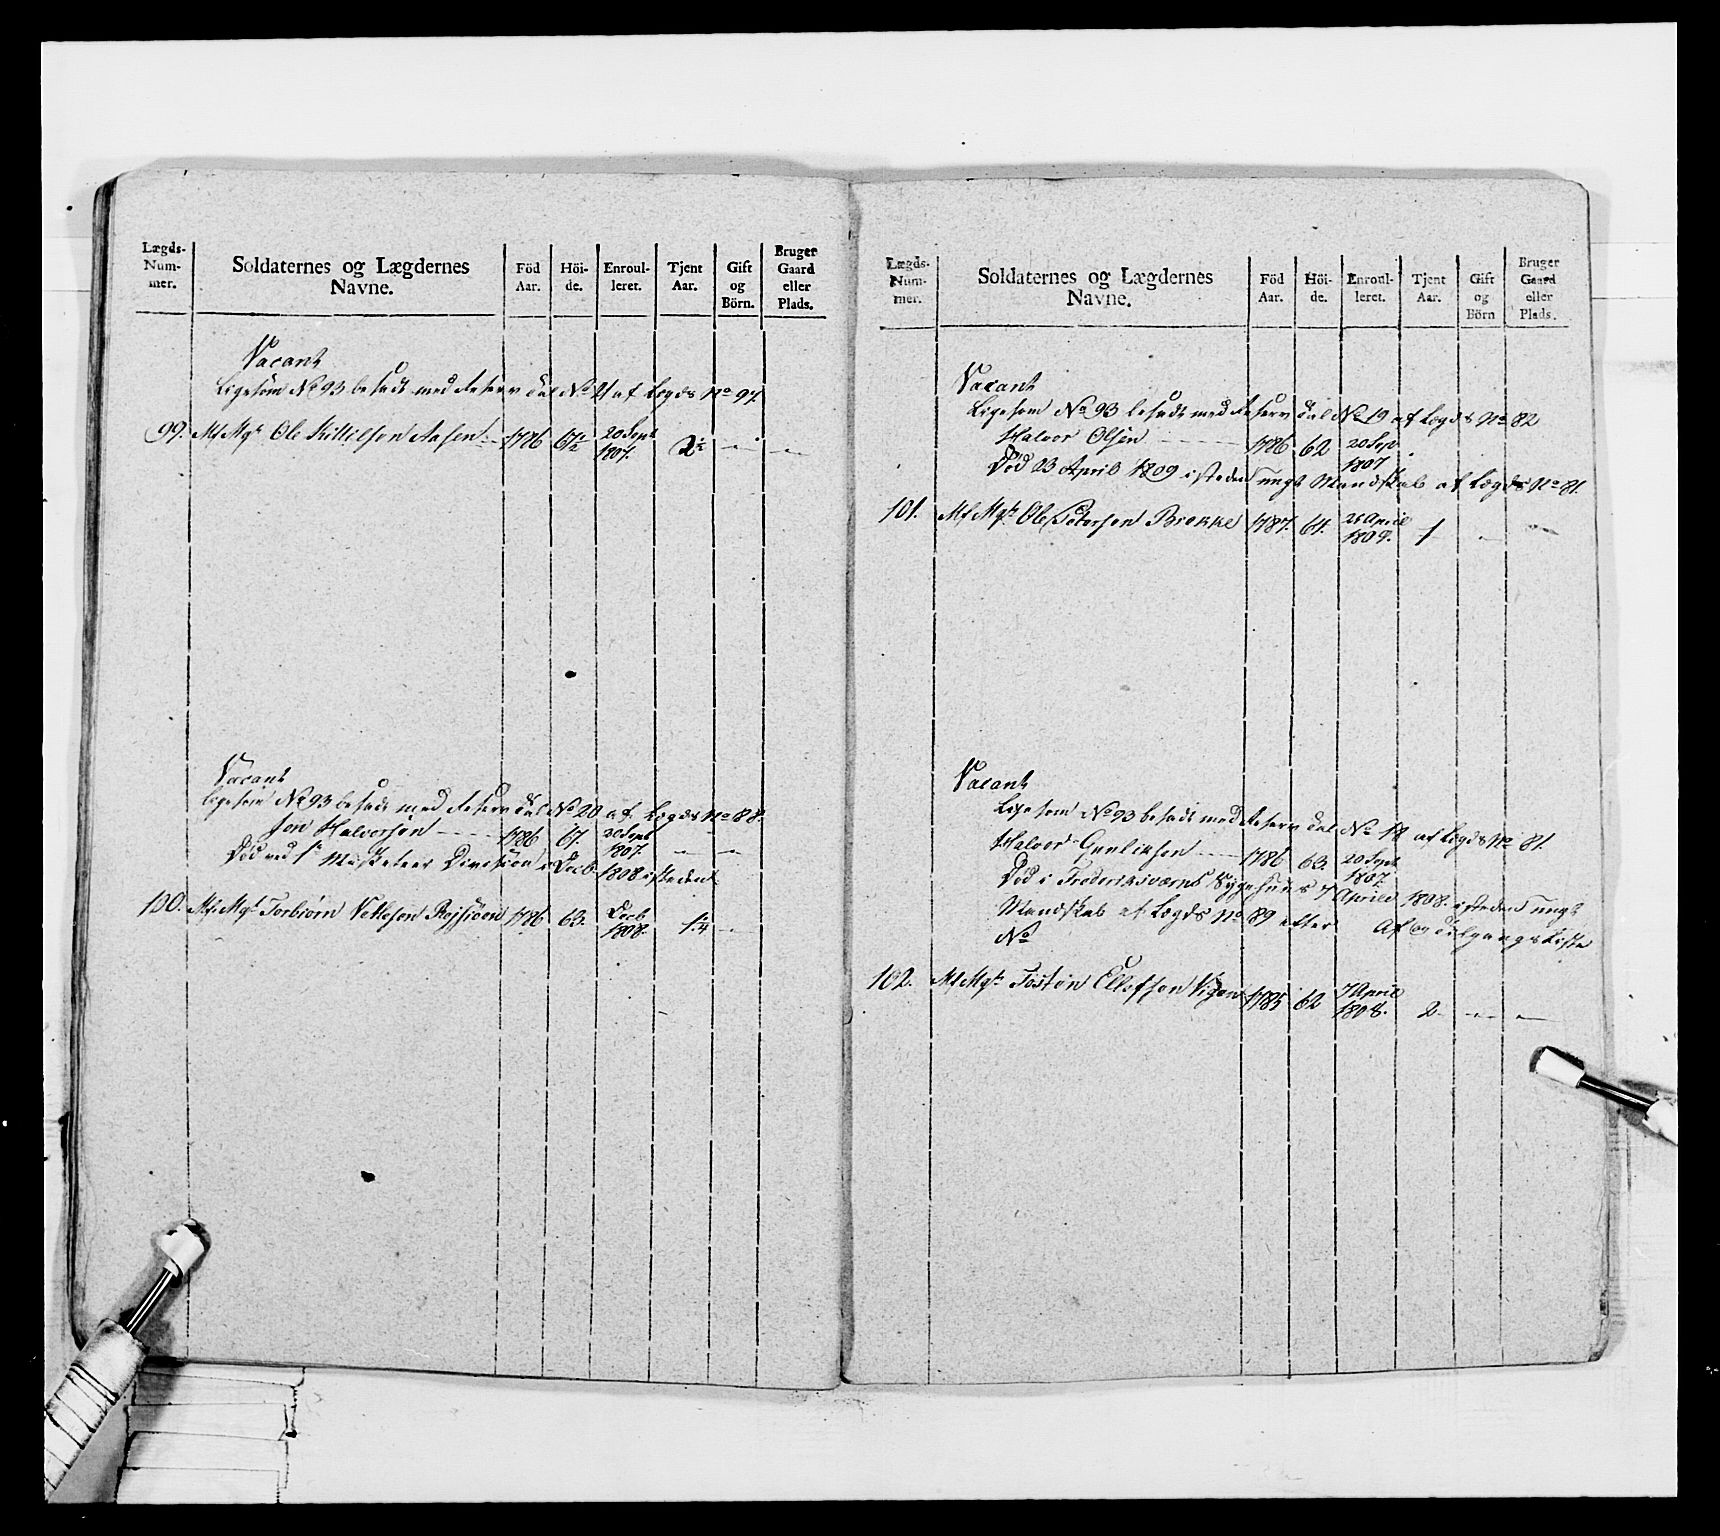 Lægds-Num-mer.
Soldaternes og Lægdernes Navne.
Föd Aar.
Höi-de.
Enroul-leret.
Tjent Aar.
Gift og Börn.
Bruger Gaard eller Plads.
Vacant
Ligesom No 93 besadt med Reserv Dal No 21 af Lægds No 97.
99. Ole Kittilson Aasen 1786 61½ 20 Sept 1807. 2½
Vacant
Ligesom No 93 besadt med Reserv Dal No 20 af Lægds No 88.
Jon Halvorsøn 1786 61. 20 Sept 1807.
Død ved 1te Musketeer Division i Decb. 1808 isteden
100. Torbiørn Vetleson 1786 63. Decb 1808. 1¼
Lægds-Num-mer.
Soldaternes og Lægdernes Navne.
Föd Aar.
Höi-de.
Enroul-leret.
Tjent Aar.
Gift og Börn
Bruger Gaard eller Plads.
Vacant
Ligesom No 93 besadt med Reserv Dal No 19 af Lægds No 82
Halvor Olsen 1786 62 20 Sep 1807
Død 23 April 1809 isteden ungt Mandskab af Lægds No 81.
101. Ole Petersen Brekke 1787. 64. 26 April 1809. 1
Vacant
Ligesom No 93 besadt med Reserv Dal No 18 af Lægds No 81.
Halvor Gunliksen 1786 63. 20 Sept 1807.
Død i Frederiksværns Sygehuus 7 April 1808. isteden ungt
Mandskab af Lægds No 89 efter Af og Tilgangs Liste
No
102. Tostøn Ellefsen 1785 62 7 April 1808. 2